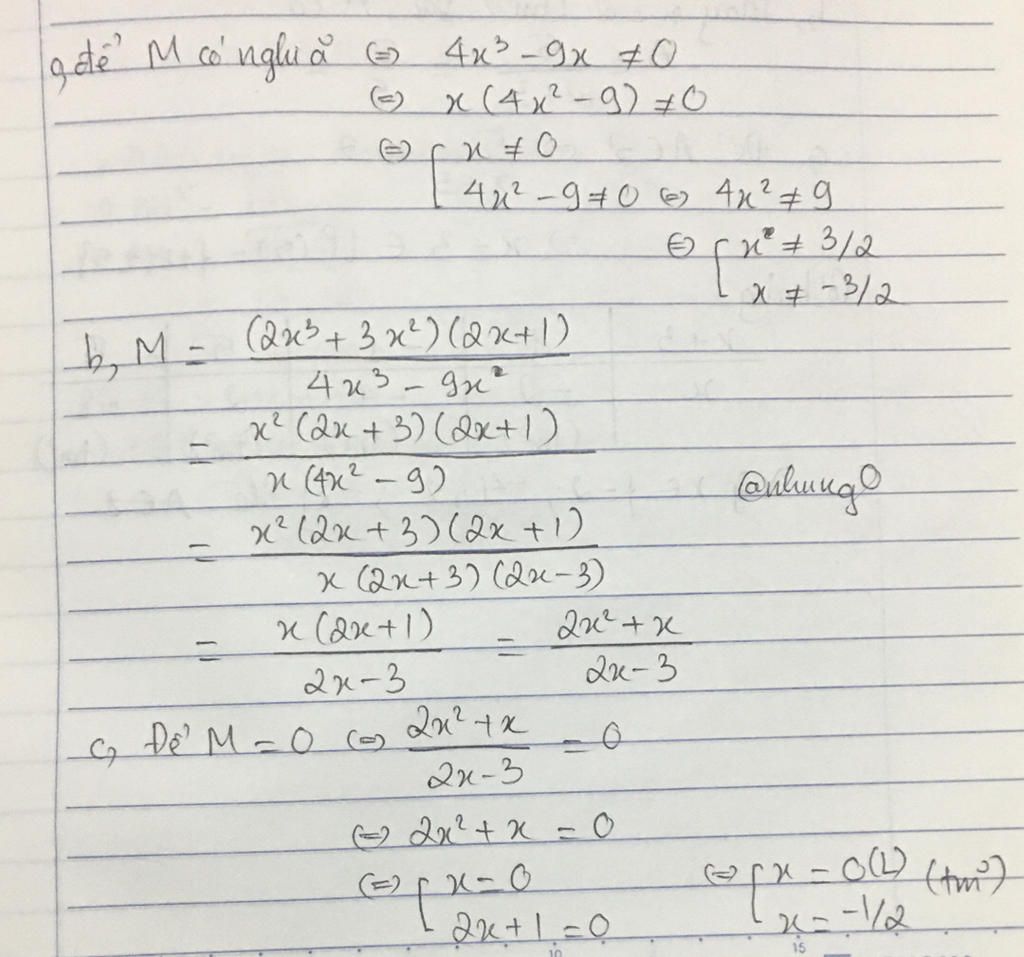 a, để M có nghĩa ⇔ 4x³ - 9x ≠ 0
⇔ x(4x² - 9) ≠ 0
⇔ [ x ≠ 0
4x² - 9 ≠ 0 ⇔ 4x² ≠ 9
⇔ [ x ≠ 3/2
x ≠ -3/2
b, M = (2x³ + 3x²)(2x+1) / 4x³ - 9x
= x²(2x+3)(2x+1) / x(4x² - 9)
@nhung0
= x²(2x+3)(2x+1) / x(2x+3)(2x-3)
= x(2x+1) / 2x-3 = 2x²+x / 2x-3
c, Để M = 0 ⇔ 2x²+x / 2x-3 = 0
⇔ 2x² + x = 0
⇔ [ x = 0 ⇔ [ x = 0 (L) (tm)
2x+1 = 0 x = -1/2
10 15